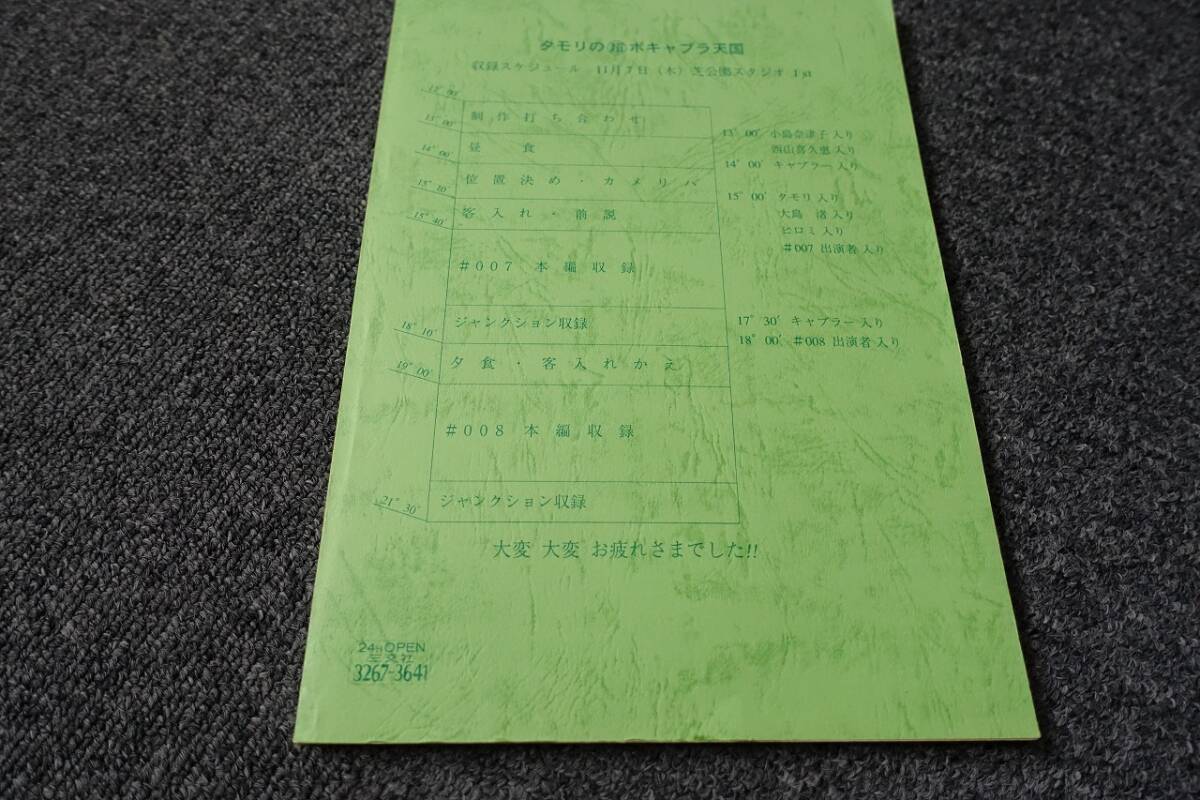 タモリの超ボキャブラ天国
収録スケジュール 11月7日(木)芝公園スタジオ 1st
12° 00′
13° 00′
制作打ち合わせ
14° 00′
昼食
15° 10′
位置決め・カメリハ
15° 40′
客入れ・前説
#007 本編収録
18° 10′
ジャンクション収録
19° 00′
夕食・客入れかえ
#008 本編収録
21° 30′
ジャンクション収録
13° 00′ 小島奈津子入り
西山喜久恵入り
14° 00′ キャブラー入り
15° 00′ タモリ入り
大島 渚入り
ヒロミ入り
#007 出演者入り
17° 30′ キャブラー入り
18° 00′ #008 出演者入り
大変 大変 お疲れさまでした!!
24H OPEN
三交社
3267-3641